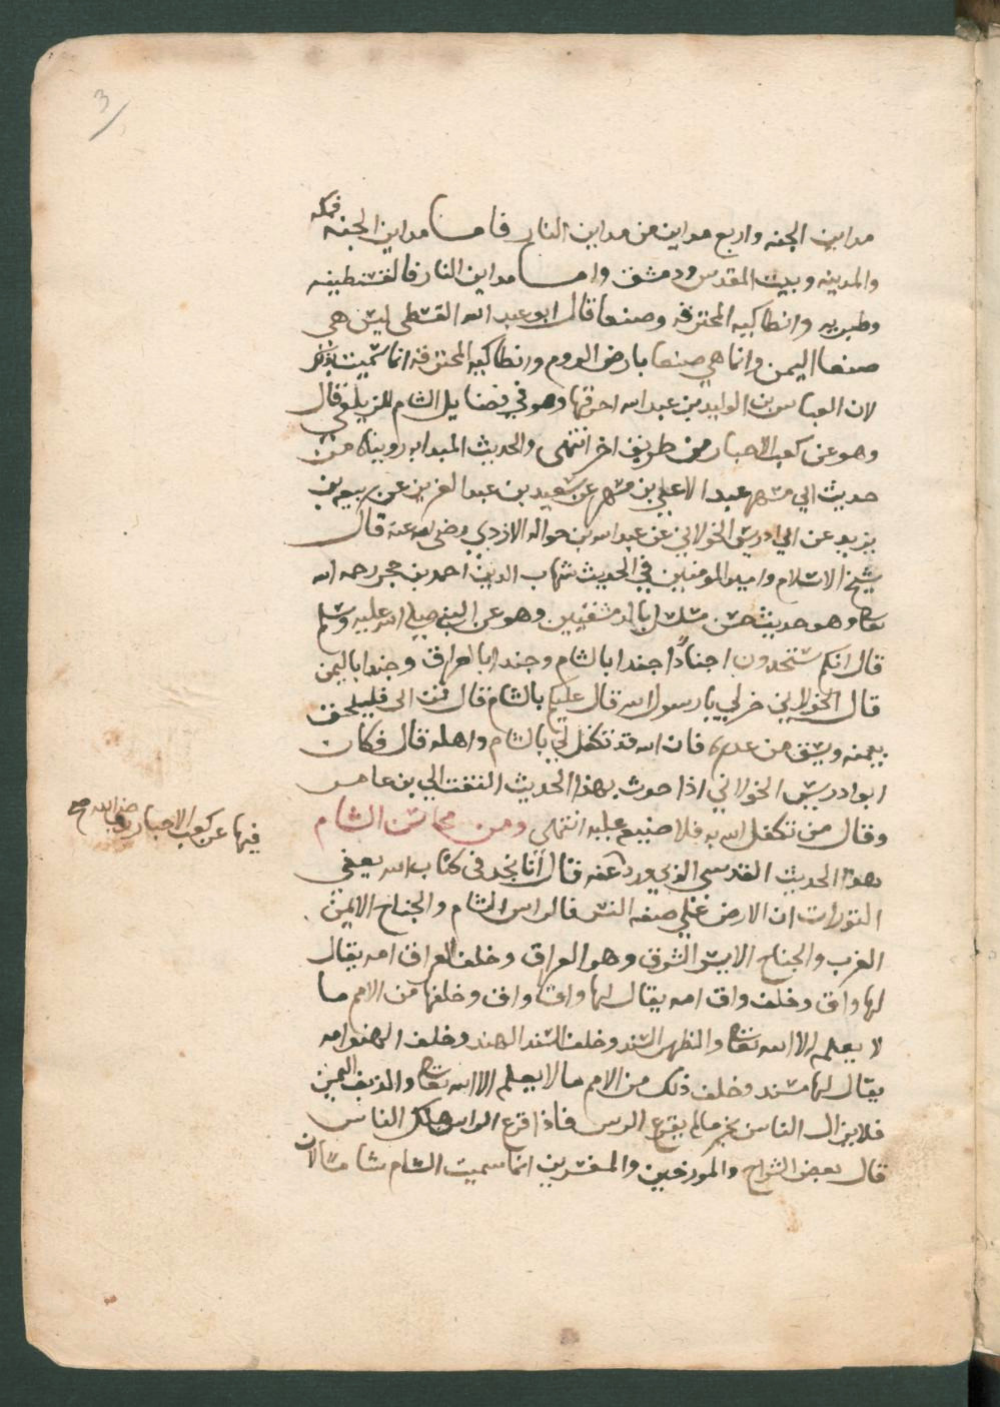 3
مداين الجنه واربع مداين من مداين النار فاما مداين الجنه فمكه
والمدينه وبيت المقدس ودمشق واما مداين النار فالقسطنطينيه
وطبريه وانطاكيه المحترقه وصنعا قال ابو عبد الله السقطي ليس هي
صنعا اليمن وانما هي صنعا بارض الروم وانطاكيه المحترقه انما سميت بذلك
لان العباس بن الوليد بن عبد الله احرقها وهو في فضايل الشام للربعي قال
وهو عن كعب الاحبار من طريق اخر انتهى والحديث المبدا به رويناه من
حديث ابي مسهر عبد الاعلي بن مسهر عن سعيد بن عبد العزيز عن ربيعه بن
يزيد عن ابي ادريس الخولاني عن عبد الله بن حواله الازدي رضي الله عنه قال
شيخ الاسلام وامير المومنين في الحديث شهاب الدين احمد بن حجر رحمه الله
تعالى وهو حديث حسن مسلسل بالدمشقيين وهو عن النبي صلي الله عليه وسلم
قال انكم ستجدون اجنادًا جندا بالشام وجندا بالعراق وجندا باليمن
قال الخولاني خر لي يا رسول الله قال عليكم بالشام قال فمن ابى فليلحق
بيمنه ويسق من غدره فان الله قد تكفل لي بالشام واهله قال فكان
ابو ادريس الخولاني اذا حدث بهذا الحديث التفت الي بن عامر
وقال من تكفل الله به فلا ضيع عليه انتهى ومن محاسن الشام
هذا الحديث القدسي الذي ورد عنه قال انا نجد في كتاب الله يعني
التورات ان الارض علي صفه النسر فالراس الشام والجناح الايمن
الغرب والجناح الايسر الشرق وهو العراق وخلف العراق امه يقال
لها واق وخلف واق امه يقال لها واق واق وخلفها من الامم ما
لا يعلمه الا الله تعالى والظهر السند وخلف السند الهند وخلف الهند امه
يقال لها مسند وخلف ذلك من الامم ما لا يعلم الا الله تعالى والذنب اليمن
فلا يزال الناس بخير مالم يقرع الراس فاذا قرع الراس هلك الناس
قال بعض الشراح والمورخين والمفسرين انما سميت الشام شامًا لان
فيها عن كعب الاحبار رضي الله صح